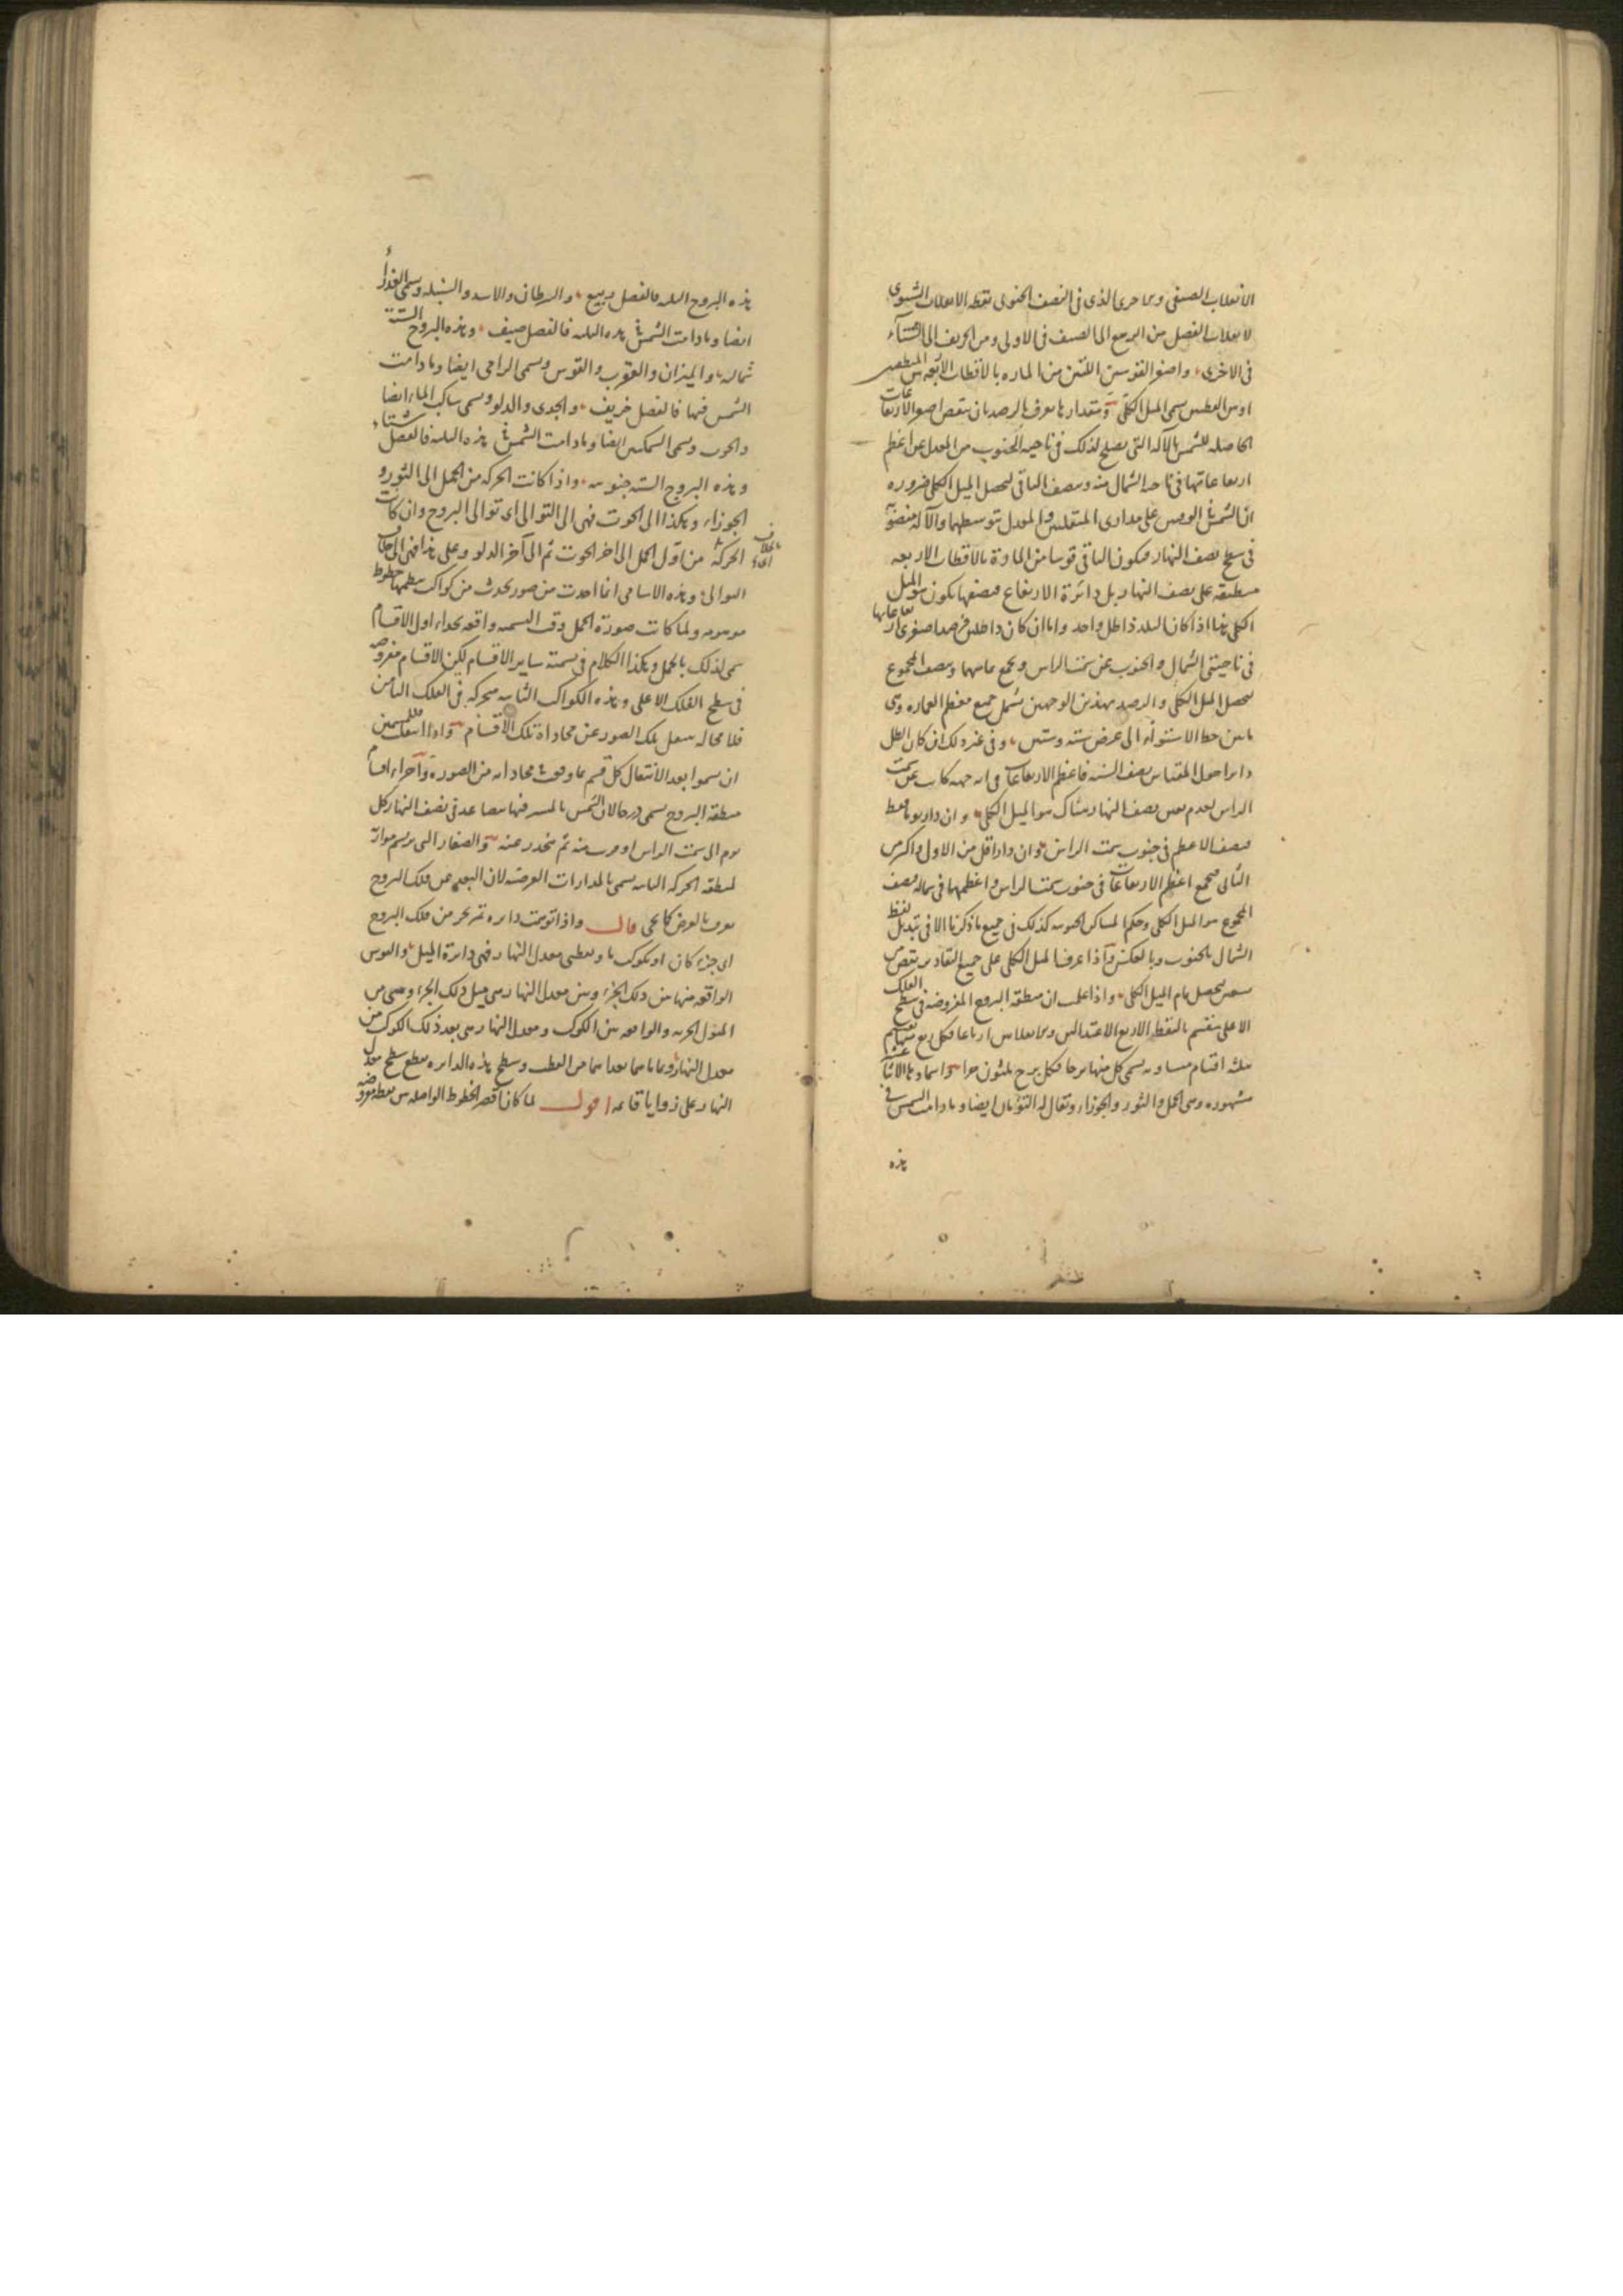 الانقلاب الصيفى وبما حرى الذى فى النصف الجنوبى نقطه الانقلاب الشتوى
لانقلاب الفصل من الربيع الى الصيف فى الاولى ومن الخريف الى الشتاء
فى الاخرى واصغر القوسين اللتين من الماره بالاقطاب الاربعه بين المنطقتين
او بين القطبين يسمى الميل الكلى ومقدارها يعرف بالرصد بان ينقص اصغر الارتفاعات
الحاصله للشمس بالآله التى تصلح لذلك فى ناحيه الجنوب من المعدل عن اعظم
ارتفاعاتها فى ناحيه الشمال منه وينصف الباقى ليحصل الميل الكلى ضروره
ان الشمس فى اليومين على مدارى المنقلبين والمعدل يتوسطهما والآله منصوبه
فى سطح نصف النهار فيكون الباقى قوسا من الماره بالاقطاب الاربعه
منطبقه على نصف النهار بل دائرة الارتفاع فنصفها يكون هو الميل
الكلى هذا اذا كان البلد ذا ظل واحد واما ان كان ذا ظلين فيرصد اصغرى ارتفاعاتها
فى ناحيتى الشمال والجنوب عن سمت الراس ويجمع ما بينهما وينصف المجموع
ليحصل الميل الكلى والرصد بهذين الوجهين يشمل جميع معظم العماره وهى
ما بين خط الاستواء الى عرض سته وستين وفى غير ذلك ان كان الظل
دايرا حول المقياس نصف السنه فاعظم الارتفاعات فى اى جهه كانت عن سمت
الراس لعدم نصف النهار هناك هو الميل الكلى وان دار يوما فقط
فنصف الاعظم فى جنوب سمت الراس وان دار اقل من الاول واكثر من
الثانى فيجمع اعظم الارتفاعات فى جنوب سمت الراس واعظمها فى شماله فنصف
المجموع هو الميل الكلى وحكم المساكن الجنوبيه كذلك فى جميع ما ذكرنا الا فى تبديل لفظ
الشمال بالجنوب وبالعكس واذا عرف الميل الكلى على جميع التقادير ينقص من
تسعين ليحصل تمام الميل الكلى واذا علمت ان منطقه البروج المفروضه فى سطح الفلك
الاعلى تنقسم بالنقط الاربع الاعتدالين والانقلابين ارباعا فكل ربع منها ينقسم
بثلثه اقسام متساويه يسمى كل منها برجا فكل برج ثلثون جزءا واسماؤها الاثنا عشر
مشهوره وهى الحمل والثور والجوزاء وتقال له التوءمان ايضا وما دامت الشمس فى
هذه
هذه البروج الثلثه فالفصل ربيع والسرطان والاسد والسنبله وتسمى العذراء
ايضا وما دامت الشمس فى هذه الثلثه فالفصل صيف وهذه البروج الستة
شماليه والميزان والعقرب والقوس ويسمى الرامى ايضا وما دامت
الشمس فيها فالفصل خريف والجدى والدلو ويسمى ساكب الماء ايضا
والحوت ويسمى السمكتين ايضا وما دامت الشمس فى هذه الثلثه فالفصل شتاء
وهذه البروج الستة جنوبيه واذا كانت الحركه من الحمل الى الثور و
الجوزاء وهكذا الى الحوت فهى الى التوالى اى توالى البروج وان كانت
الحركه من اول الحمل الى اخر الحوت ثم الى آخر الدلو وعلى هذا فهى الى خلاف
التوالى وهذه الاسامى انما اخذت من صور تحدث من كواكب ينظمها خطوط
موهومه ولما كانت صورة الحمل وقت التسميه واقعه بحذاء اول الاقسام
سمى لذلك بالحمل وهكذا الكلام فى تسمية ساير الاقسام لكن الاقسام مفروضه
فى سطح الفلك الاعلى وهذه الكواكب الثابته متحركه فى الفلك الثامن
فلا محاله تنتقل تلك الصور عن محاذاة تلك الاقسام واذا انتقلت فللمسمين
ان يسموا بعد الانتقال كل قسم بما وقعت محاذاته من الصورة واجزاء اقسام
منطقه البروج تسمى درجا لان الشمس بالمسير فيها متصاعد فى نصف النهار كل
يوم الى سمت الراس او قرب منه ثم تنحدر عنه والصغار التى ترسم موازيه
لمنطقه الحركه الثانيه تسمى بالمدارات العرضيه لان البعد عن فلك البروج
يعرف بالعرض كما يجئ قال واذا توهمت دايره تمر بجزء من فلك البروج
اى جزء كان او بكوكب ما وبقطبى معدل النهار فهى دايرة الميل والقوس
الواقعه منها بين ذلك الجزء وبين معدل النهار هى ميل ذلك الجزء وهى من
الميول الجزئيه والواقعه بين الكوكب ومعدل النهار هى بعد ذلك الكوكب من
معدل النهار وسطح هذه الدايره يقطع سطح معدل
النهار على زوايا قايمه اقول لما كان اقصر الخطوط الواصله بين نقطه مفروضه